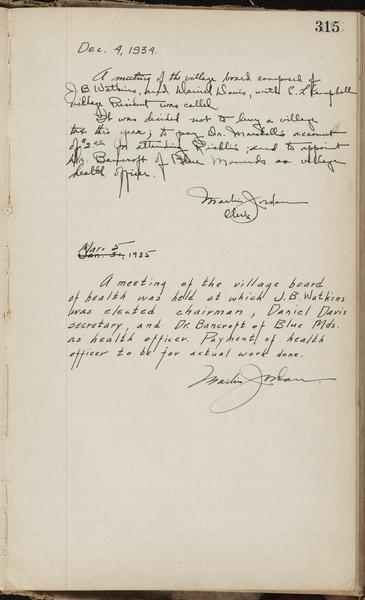 315
Dec. 4, 1934.
A meeting of the village board composed of
J. B. Watkins, and Daniel Davis, with E. L. Campbell
village President was called.
It was decided not to levy a village
tax this year; to pay Dr. Marshall's account
of $2.00 for attending ; and to appoint
Dr. Bancroft of Blue Mounds as village
health officer.
Martin Jordan
Clerk
Mar. 5
Jan. 31, 1935
A meeting of the village board
of health was held at which J. B. Watkins
was elected chairman, Daniel Davis
secretary, and Dr. Bancroft of Blue Mds.
as health officer. Payment of health
officer to be for actual work done.
Martin Jordan